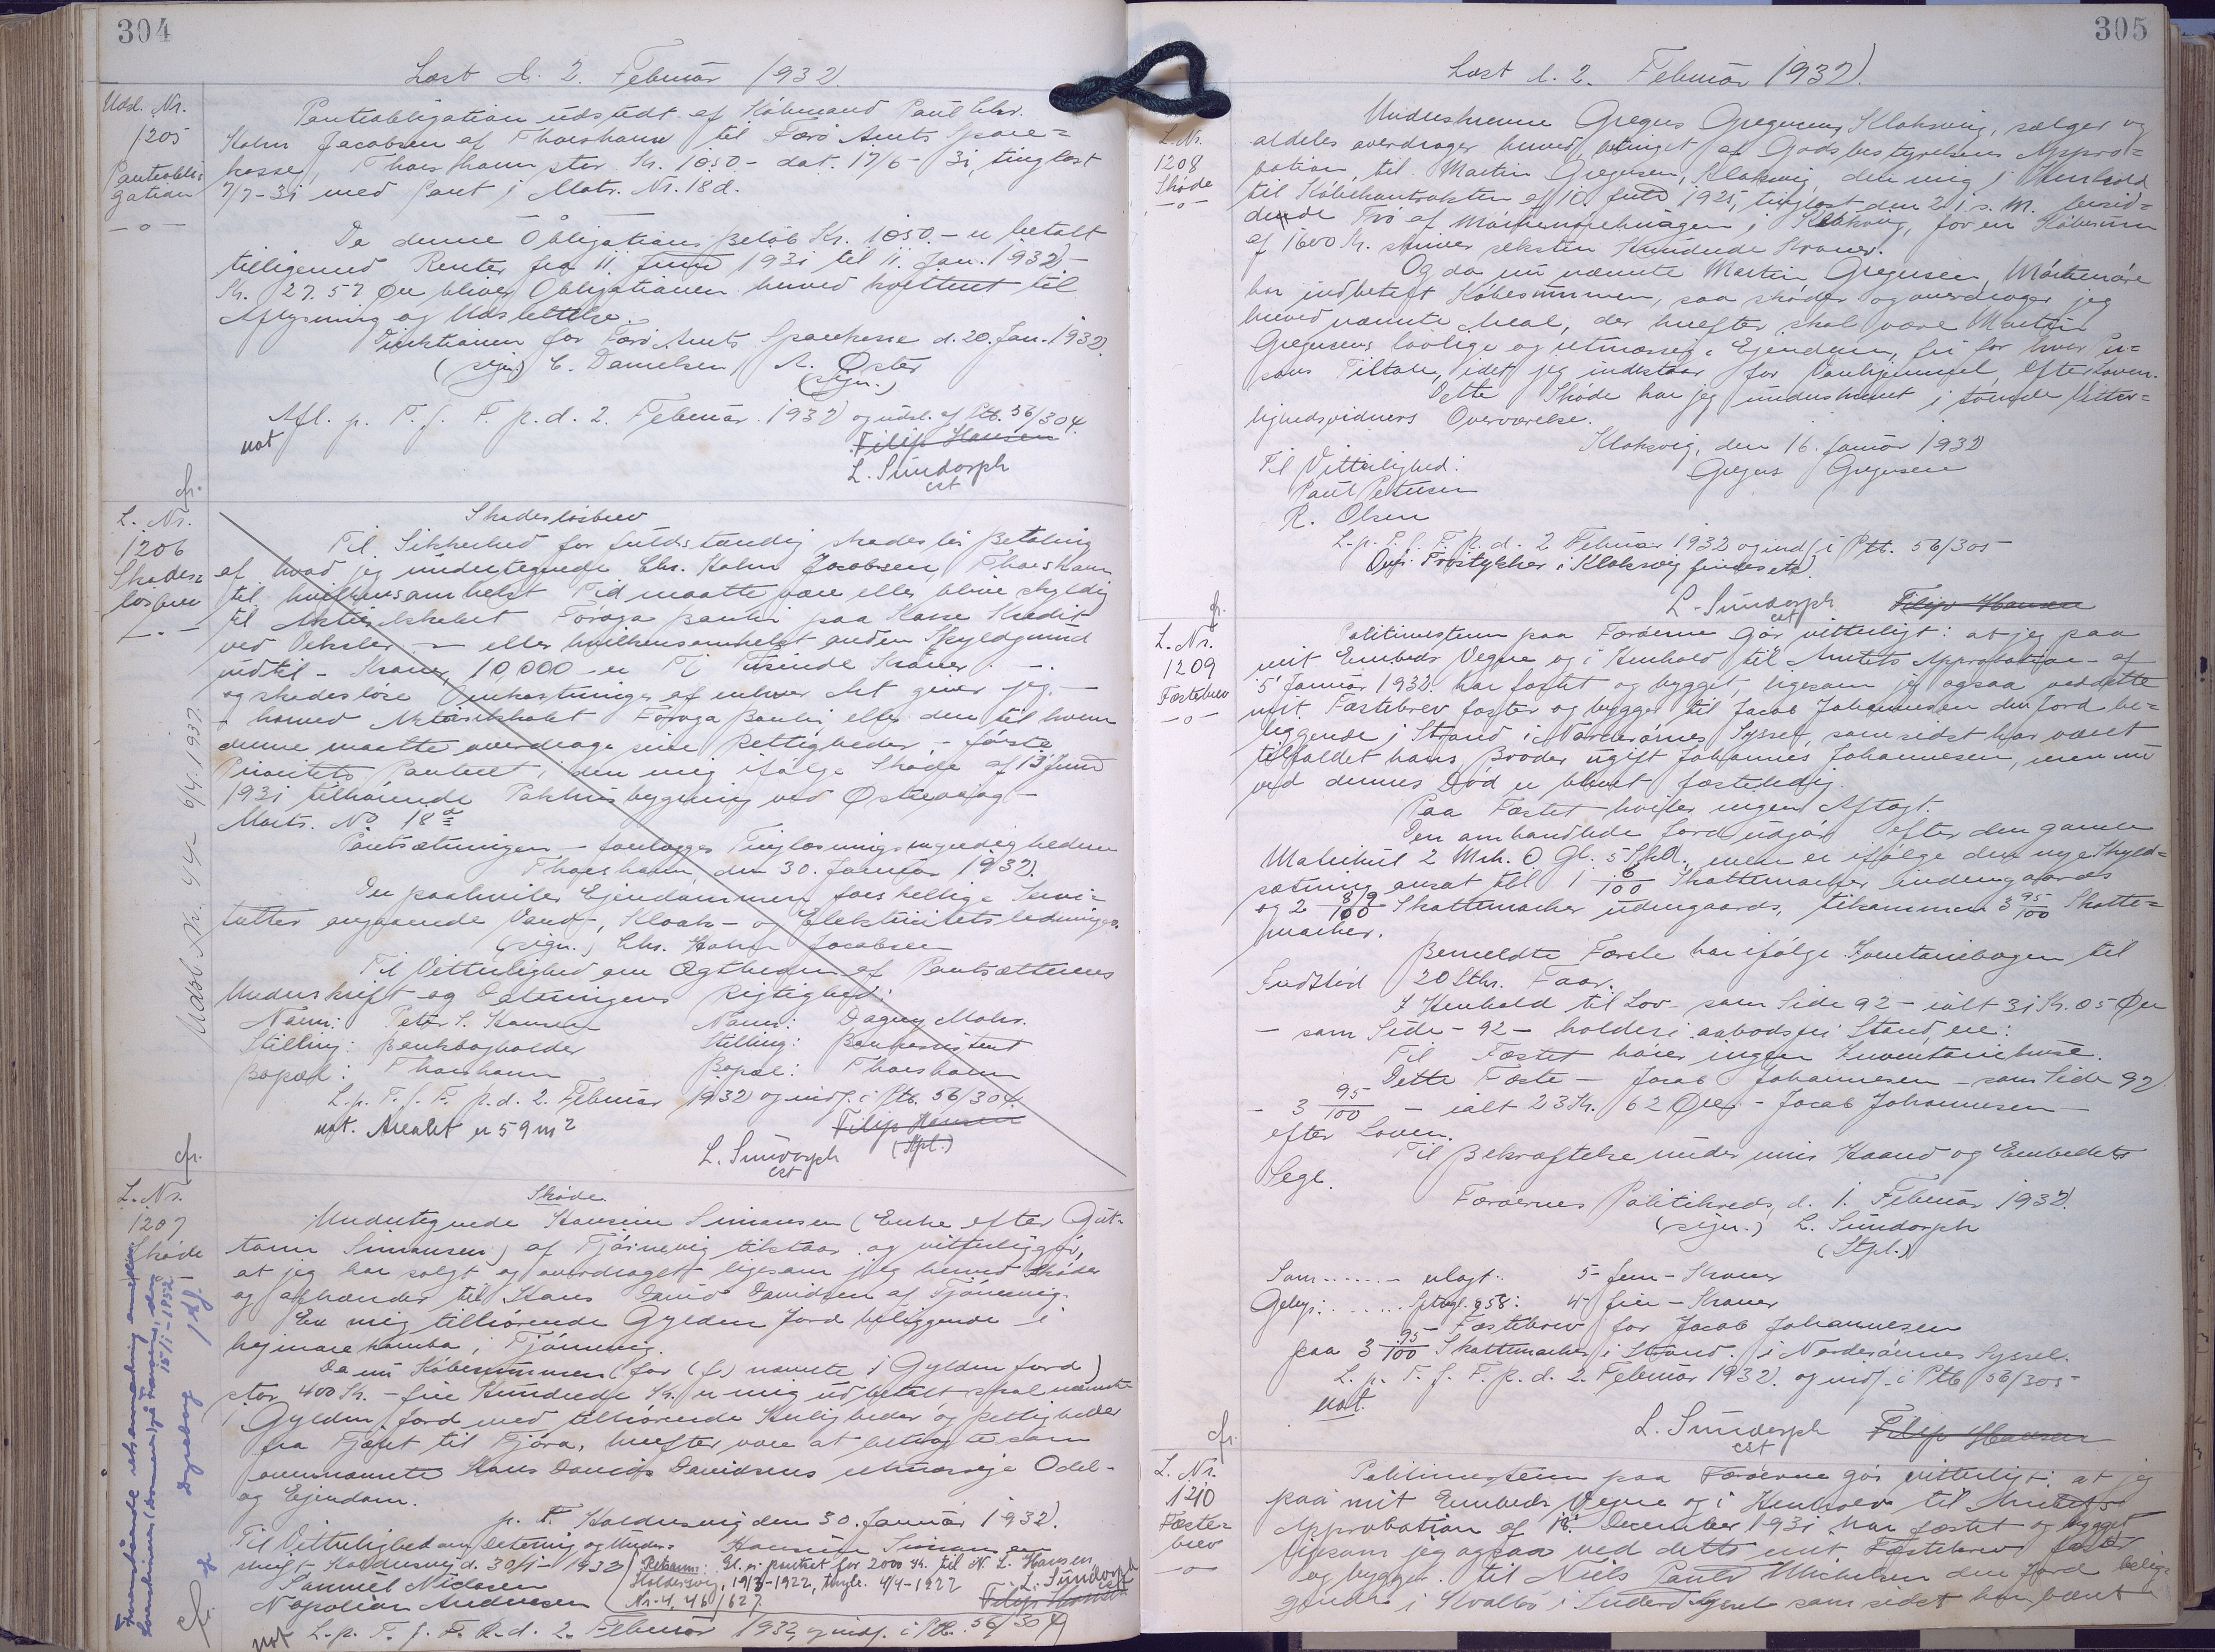 304
Læst d. 2. Februar 1932.
Udsl. Nr.
1205
Pantobli-
gation
—o—
Pantobligation udstedt af Købmand Paul Chr.
Holm Jacobsen af Thorshavn til Færø Amts Spare=
kasse, Thorshavn stor Kr. 1050- dat. 17/6- 31, tinglæst
7/7-31 med Pant i Matr. Nr. 18d.
Da denne Obligations Beløb Kr. 1050.- er betalt
tilligemed Renter fra 11. Juni 1931 til 11. Jan. 1932-
Kr. 27.57 Øre bliver Obligationen herved kvitteret til
Aflysning og Udslettelse.
Direktionen for Færø Amts Sparekasse d. 20. Jan. 1932.
(sign.) C. Danielsen A. Øster
(sign.)
Afl. p. T. f. F. p. d. 2. Februar 1932 og udsl. af Ptb. 56/304.
not
Filip Hansen
L. Sundorph
cst
cfr.
L. Nr.
1206
Skades=
løsbrev
—.—
Skadesløsbrev
Til Sikkerhed for fuldstændig skadesløs Betaling
af hvad jeg undertegnede Chr. Holm Jacobsen, Thorshavn
til hvilkensomhelst Tid maatte være eller blive skyldig
til Aktieselskabet Føroya Banki paa Kasse Kredit
ved Veksler - eller hvilkensomhelst anden Skyldgrund
indtil - Kroner 10,000 - er Ti Tusinde Kroner. -.
og skadesløse Omkostninger af enhver Art giver jeg. -
- herved Aktieselskabet Føroya Banki eller den til hvem
denne maatte overdrage sine Rettigheder, - første
Prioritets Panteret i den mig ifølge Skøde af 13 Juni
1931 tilhørende Pakhusbygning ved Østrevaag -
Matr. No 18 a
Pantsætningen - forelægges Tinglæsningsmyndighederne
Thorshavn, den 30. Januar 1932.
Der paahviler Ejendommen forskellige Servi-
tutter angaaende Vand-, Kloak- og Elektricitetsledninger.
(sign.) Chr. Holm Jacobsen
Til Vitterlighed om Ægtheden af Pantsætterens
Underskrift og Dateringens Rigtighed:
Navn: Peter S. Hansen Navn: Dagny Mohr.
Stilling: Bankbogholder Stilling: Bankassistent
Bopæl: Thorshavn Bopæl: Thorshavn
L. p. T. f. F. p. d. 2. Februar 1932 og indf. i Ptb. 56/304.
not. Arealet er 59 m2
Filip Hansen
L. Sundorph (Stpl.)
cst
Udsl. Nr. 44- 6/4. 1937.
cfr.
L. Nr.
1207
Skøde
Skøde
Undertegnede Hansine Simonsen (Enke efter Gut-
torm Simonsen) af Tjørnevig tilstaar og vitterliggør,
at jeg har solgt og overdraget ligesom jeg herved skøder
og afhænder til Hans David Davidsen af Tjørnevig.
En mig tilhørende Gylden Jord beliggende i
hejmare hamba, i Tjørnevig.
Da nu Købesummen (for (f.) nævnte 1 Gylden Jord)
stor 400 Kr. - fire Hundrede Kr. er mig udbetalt skal nævnte
1 Gylden Jord med tilhørende Herligheder og Rettigheder
fra Fjæut til Fjøra, herefter være at betragte som
ovennævnte Hans Davids Davidsens retmæssige Odel-
og Ejendom.
p. t. Haldersvig den 30. Januar 1932.
Til Vitterlighed om Datering og Under= Hansine Simonsen
skrift, Haldersvig d. 30/1-1932
Samuel Niclasen
Napoleon Andreasen
Retsanm.: Gl. er pantset for 2000 Kr. til N. L. Hansen
Haldersvig, 19/3-1922, tingl. 4/4-1922
Nr. 4, 46/627.
L. Sundorph
cst
Filip Hansen
not L. p. T. f. F. p. d. 2. Februar 1932, og indf. i Ptb. 56/304
15/1-1952
Dyreborg
cfr.
305
Læst d. 2. Februar 1932.
L. Nr.
1208
Skøde
—o—
Underskrevne Gregers Gregersen, Klaksvig, sælger og
aldeles overdrager herved, betinget af Godsbestyrelsens Appro=
bation, til Martin Gregersen, Klaksvig, den mig i Henhold
til Købekontrakten af 10. Juli 1925, tinglæst den 21. s. M. besid=
dende Trø af i Klaksvig, for en Købesum
af 1600 Kr. skriver seksten Hundrede Kroner.
Og da nu nævnte Martin Gregersen,
har indbetalt Købesummen, saa skøder og overdrager jeg
herved nævnte Areal, der herefter skal være Martin
Gregersens lovlige og retmæssige Ejendom, fri for hver Per=
sons Tiltale, idet jeg indestaar for Vanhjemmel efter Loven.
Dette Skøde har jeg underskrevet i tvende Vitter=
lighedsvidners Overværelse.
Klaksvig, den 16. Januar 1932
Til Vitterlighed: Gregers Gregersen
Paul Petersen
R. Olsen
L. p. T. f. F. p. d. 2 Februar 1932 og indf. i Ptb. 56/305-
Ovf. Trøstykker i Klaksvig findes etc.
L. Sundorph Filip Hansen
cst
cfr.
L. Nr.
1209
Fæstebrev
—o—
Politimesteren paa Færøerne Gør vitterligt: at jeg paa
mit Embeds Vegne og i Henhold til Amtets Approbation af
5' Januar 1932. har fæstet og bygget, ligesom jeg ogsaa ved dette
mit Fæstebrev fæster og bygger til Jacob Johannesen den Jord be=
liggende i Strand i Norderøernes Syssel, som sidst har været
tilfaldet hans Broder ugift Johannes Johannesen, men nu
ved dennes Død er blevet fæsteledig.
Paa Fæstet hviler ingen Aftægt.
Den omhandlede Jord udgør efter den gamle
Matrikul 2 Mrk. 0 Gl. 5 Skd., men er ifølge den nye Skyld=
sætning ansat til 1 6/100 Skattemarker indengaards
og 2 89/100 Skattemarker udengaards, tilsammen 3 95/100 Skatte=
marker.
Bemeldte Fæste har ifølge Inventariebogen til
Indstød 20 Stkr. Faar.
I Henhold til Lov - som Side 92 - ialt 31 Kr. 05 Øre
- som Side - 92 - holdes i aabodsfri Stand, ere:
Til Fæstet hører ingen Inventariehuse.
Dette Fæste - Jacob Johannesen - som Side 92
- 3 95/100 - ialt 23 Kr. 62 Øre - Jacob Johannesen -
efter Loven.
Til Bekræftelse under min Haand og Embedets
Segl.
Færøernes Politikreds, d. 1. Februar 1932.
(sign.) L. Sundorph
(Stpl.)
Som ....... - erlagt: 5- fem - Kroner
Gebyr: ...... Sptbgl. 958: 4- fire - Kroner
Fæstebrev for Jacob Johannesen
paa 3 95/100 Skattemarker i Strand. i Norderøernes Syssel.
L. p. T. f. F. p. d. 2. Februar 1932. og indf. i Ptb 56/305-
not.
L. Sundorph Filip Hansen
cst
cfr.
L. Nr.
1210
Fæste=
brev
—o—
Politimesteren paa Færøerne gør vitterligt: at jeg
paa mit Embeds Vegne og i Henhold til Amtets
Approbation af 18' December 1931 har fæstet og bygget
ligesom jeg ogsaa ved dette mit Fæstebrev fæster
og bygger til Niels Pauli Michelsen den Jord belig=
gende i Kvalbø i Suderø Syssel som sidst har været